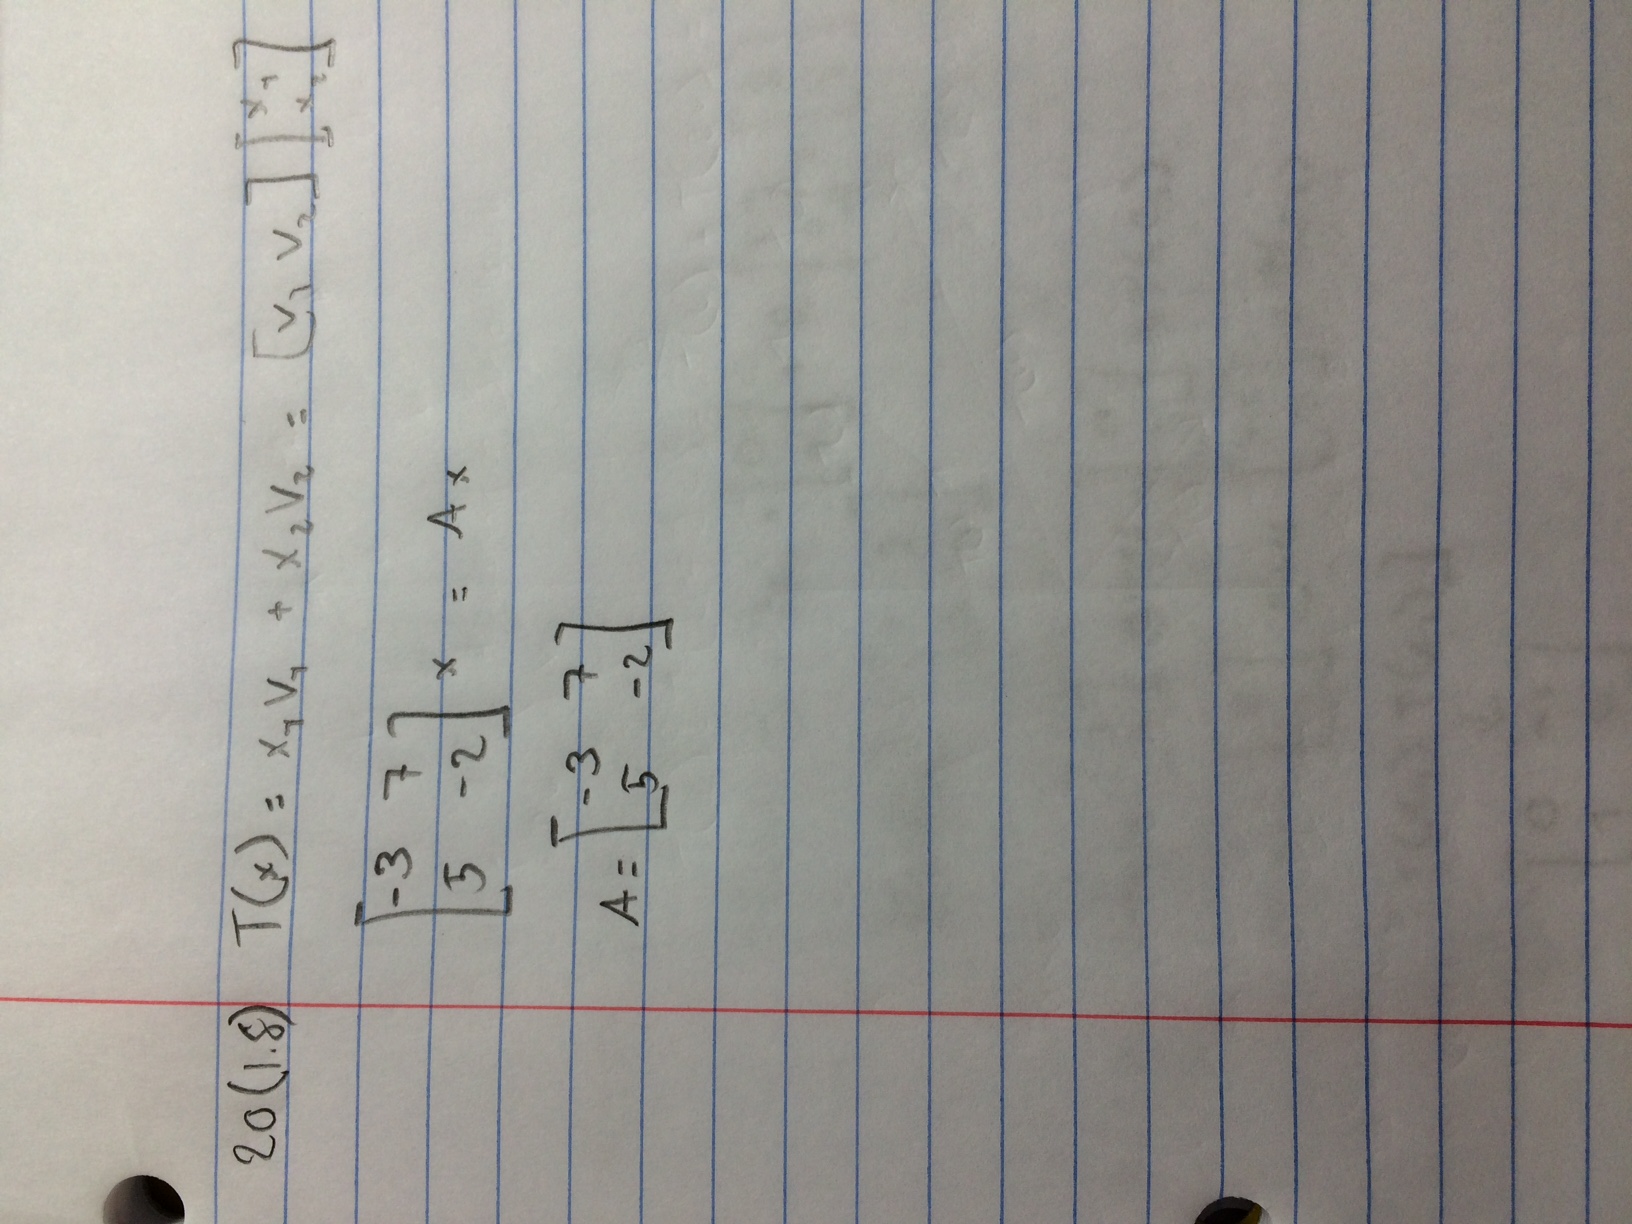 20(1.8) T(x) = x₁v₁ + x₂v₂ = [v₁ v₂] [x₁
x₂]
[-3 7
5 -2] x = Ax
A = [-3 7
5 -2]